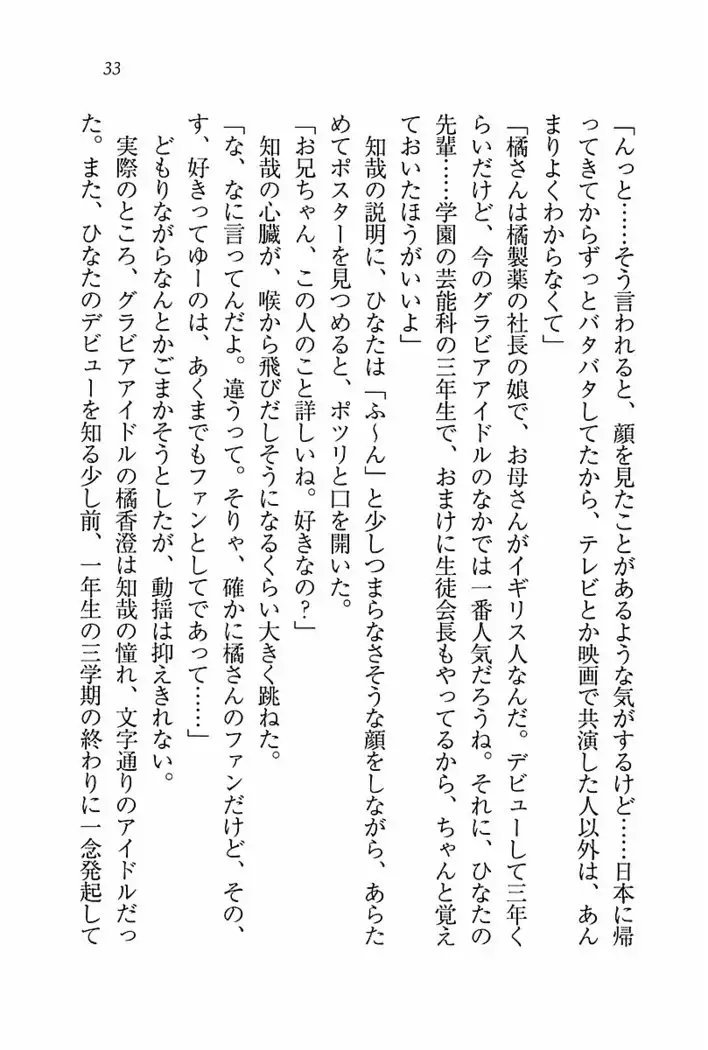 33
「んっと……そう言われると、顔を見たことがあるような気がするけど……日本に帰
ってきてからずっとバタバタしてたから、テレビとか映画で共演した人以外は、あん
まりよくわからなくて」
「橘さんは橘製薬の社長の娘で、お母さんがイギリス人なんだ。デビューして三年く
らいだけど、今のグラビアアイドルのなかでは一番人気だろうね。それに、ひなたの
先輩……学園の芸能科の三年生で、おまけに生徒会長もやってるから、ちゃんと覚え
ておいたほうがいいよ」
知哉の説明に、ひなたは「ふ～ん」と少しつまらなさそうな顔をしながら、あらた
めてポスターを見つめると、ポツリと口を開いた。
「お兄ちゃん、この人のこと詳しいね。好きなの？」
知哉の心臓が、喉から飛びだしそうになるくらい大きく跳ねた。
「な、なに言ってんだよ。違うって。そりゃ、確かに橘さんのファンだけど、その、
す、好きってゆーのは、あくまでもファンとしてであって……」
どもりながらなんとかごまかそうとしたが、動揺は抑えきれない。
実際のところ、グラビアアイドルの橘香澄は知哉の憧れ、文字通りのアイドルだっ
た。また、ひなたのデビューを知る少し前、一年生の三学期の終わりに一念発起して